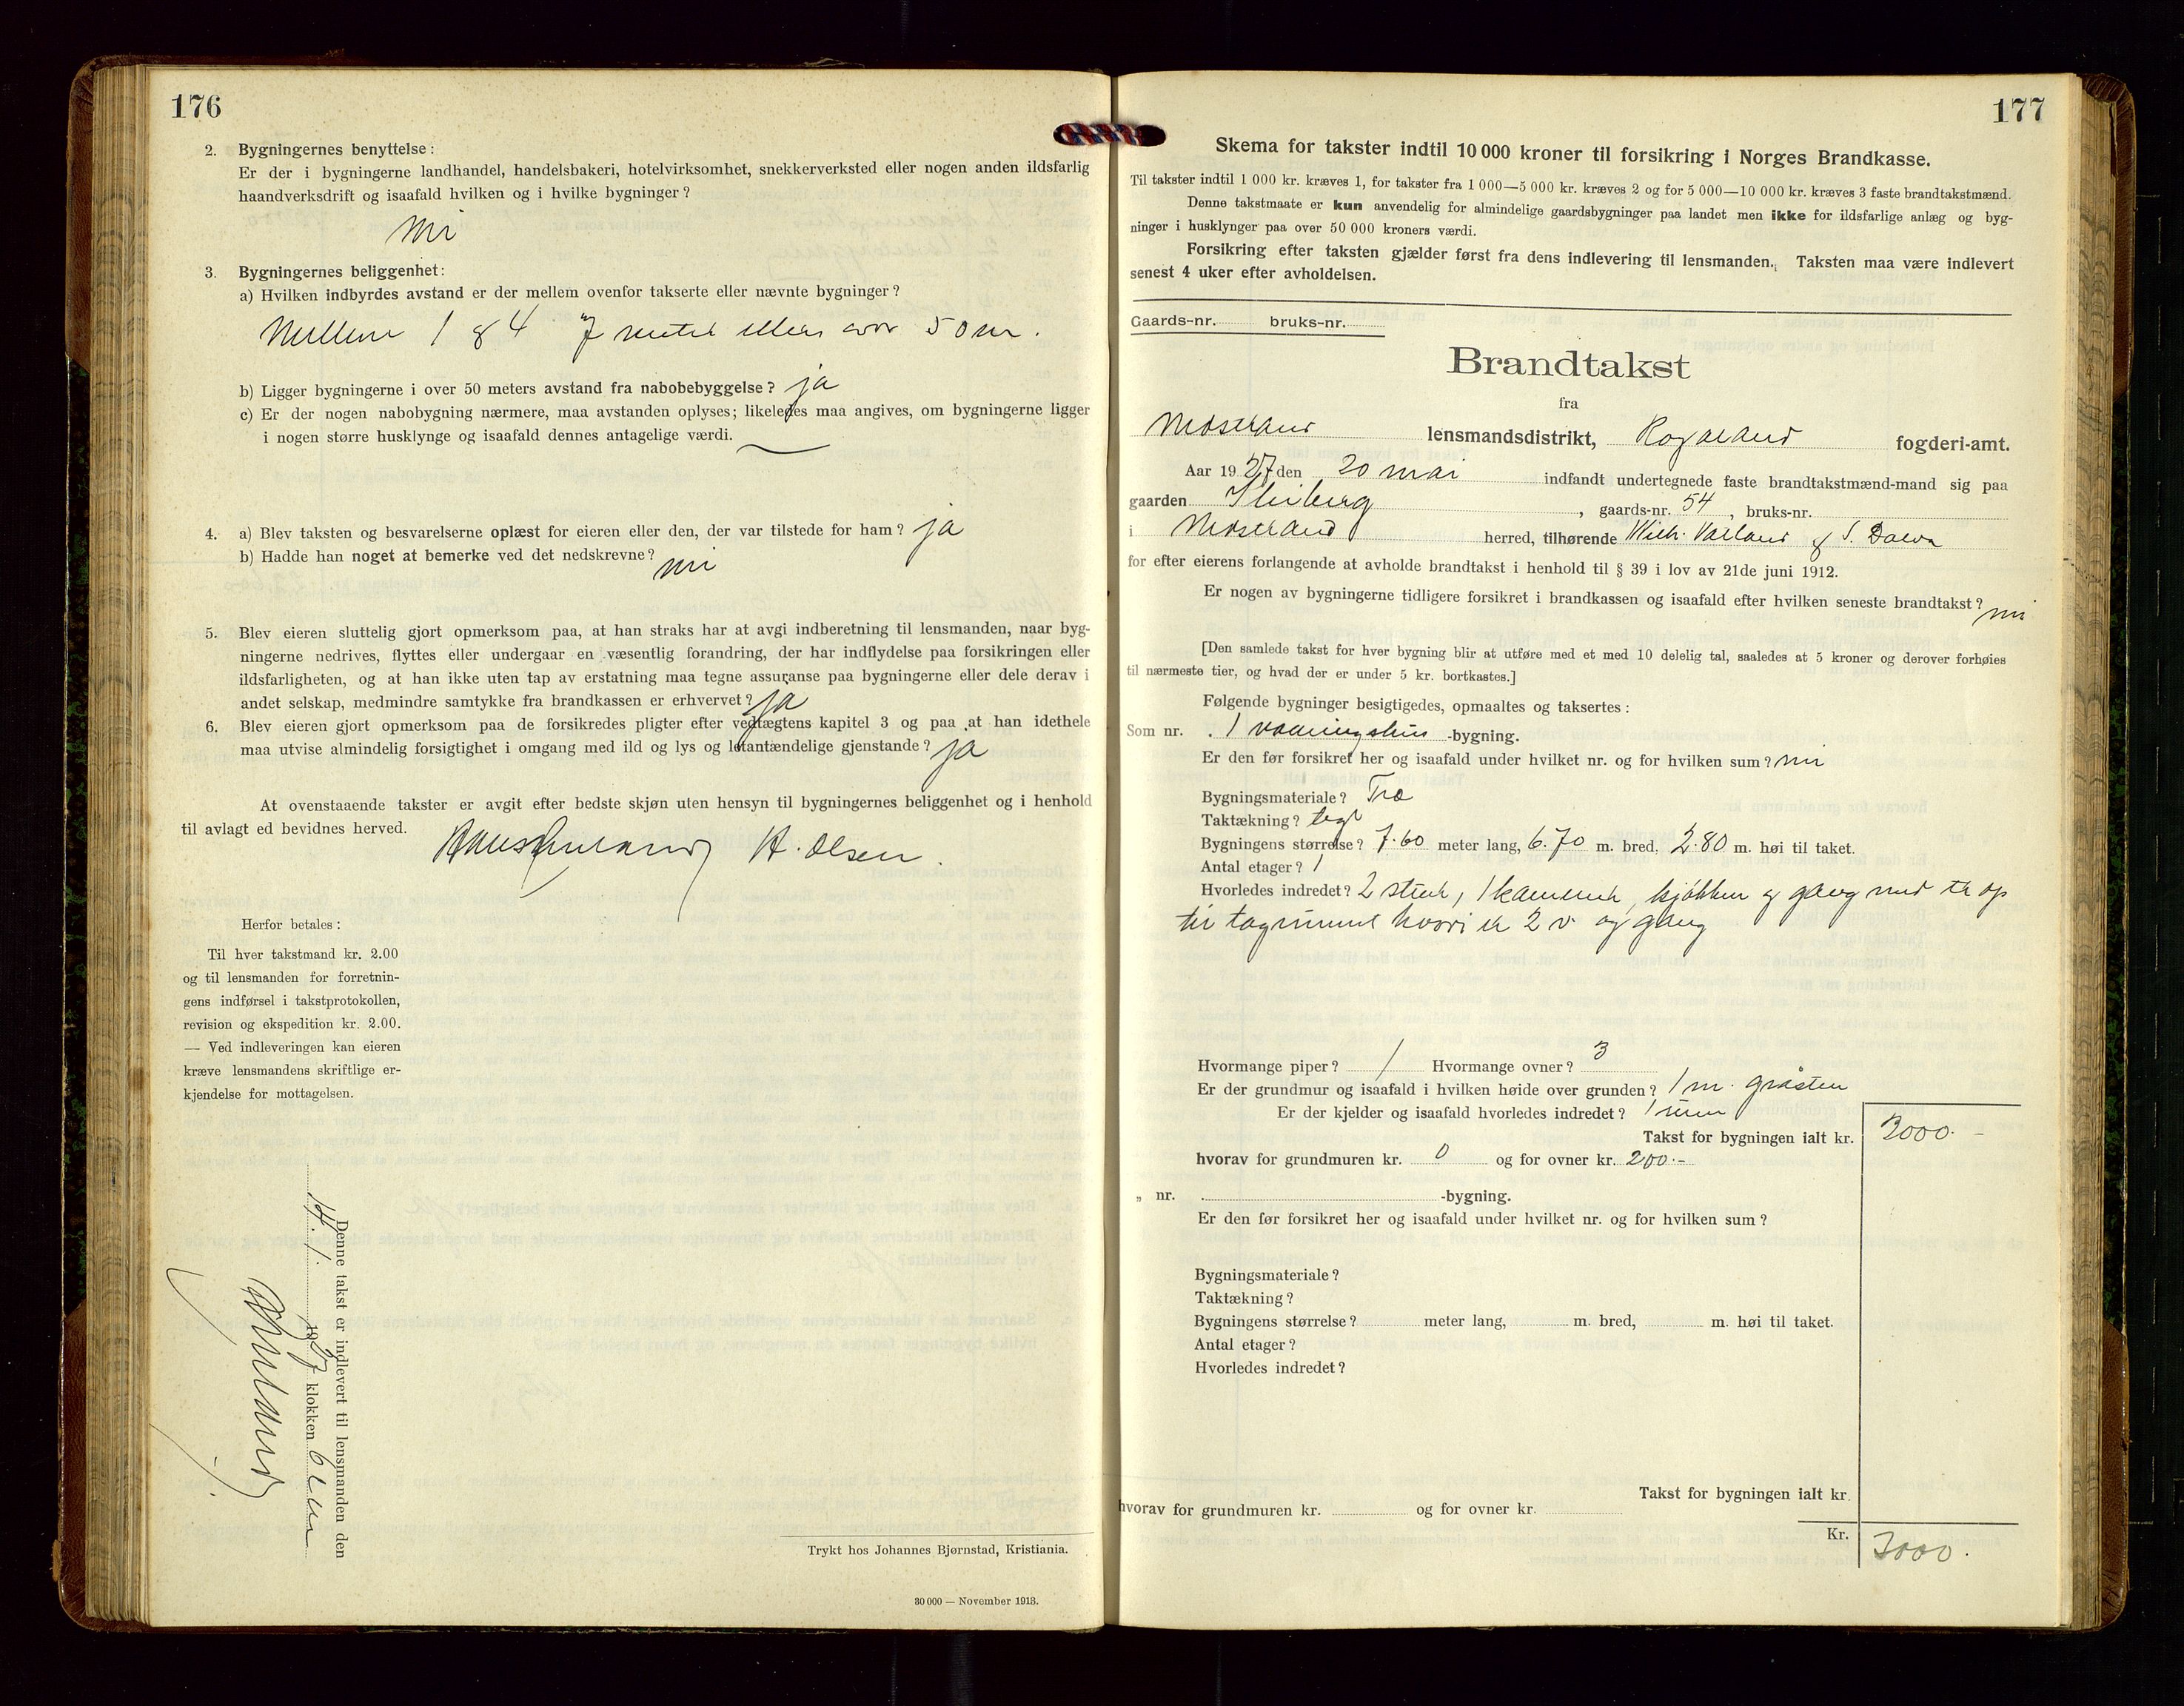 176
2. Bygningernes benyttelse:
Er der i bygningerne landhandel, handelsbakeri, hotelvirksomhet, snekkerverksted eller nogen anden ildsfarlig
haandverksdrift og isaafald hvilken og i hvilke bygninger?
nei
3. Bygningernes beliggenhet:
a) Hvilken indbyrdes avstand er der mellem ovenfor takserte eller nævnte bygninger?
Mellem 1 & 4 7 meter ellers over 50 m.
b) Ligger bygningerne i over 50 meters avstand fra nabobebyggelse? ja
c) Er der nogen nabobygning nærmere, maa avstanden oplyses; likeledes maa angives, om bygningerne ligger
i nogen større husklynge og isaafald dennes antagelige værdi.
4. a) Blev taksten og besvarelserne oplæst for eieren eller den, der var tilstede for ham? ja
b) Hadde han noget at bemerke ved det nedskrevne? nei
5. Blev eieren sluttelig gjort opmerksom paa, at han straks har at avgi indberetning til lensmanden, naar byg-
ningerne nedrives, flyttes eller undergaar en væsentlig forandring, der har indflydelse paa forsikringen eller
ildsfarligheten, og at han ikke uten tap av erstatning maa tegne assuranse paa bygningerne eller dele derav i
andet selskap, medmindre samtykke fra brandkassen er erhvervet? ja
6. Blev eieren gjort opmerksom paa de forsikredes pligter efter vedtægtens kapitel 3 og paa at han idethele
maa utvise almindelig forsigtighet i omgang med ild og lys og letantændelige gjenstande? ja
At ovenstaaende takster er avgit efter bedste skjøn uten hensyn til bygningernes beliggenhet og i henhold
til avlagt ed bevidnes herved.
H. Olsen.
Herfor betales:
Til hver takstmand kr. 2.00
og til lensmanden for forretnin-
gens indførsel i takstprotokollen,
revision og ekspedition kr. 2.00.
— Ved indleveringen kan eieren
kræve lensmandens skriftlige er-
kjendelse for mottagelsen.
Denne takst er indlevert til lensmanden den
14. 1. 1927 klokken 6
Trykt hos Johannes Bjørnstad, Kristiania.
30 000 — November 1913.
177
Skema for takster indtil 10 000 kroner til forsikring i Norges Brandkasse.
Til takster indtil 1 000 kr. kræves 1, for takster fra 1 000—5 000 kr. kræves 2 og for 5 000—10 000 kr. kræves 3 faste brandtakstmænd.
Denne takstmaate er kun anvendelig for almindelige gaardsbygninger paa landet men ikke for ildsfarlige anlæg og byg-
ninger i husklynger paa over 50 000 kroners værdi.
Forsikring efter taksten gjælder først fra dens indlevering til lensmanden. Taksten maa være indlevert
senest 4 uker efter avholdelsen.
Gaards-nr. bruks-nr.
Brandtakst
fra
Mosterand lensmandsdistrikt, Rogaland fogderi-amt.
Aar 1927 den 20 mai indfandt undertegnede faste brandtakstmænd-mand sig paa
gaarden , gaards-nr. 54 , bruks-nr.
i Mosterand herred, tilhørende Wilh. &
for efter eierens forlangende at avholde brandtakst i henhold til § 39 i lov av 21de juni 1912.
Er nogen av bygningerne tidligere forsikret i brandkassen og isaafald efter hvilken seneste brandtakst? nei
[Den samlede takst for hver bygning blir at utføre med et med 10 delelig tal, saaledes at 5 kroner og derover forhøies
til nærmeste tier, og hvad der er under 5 kr. bortkastes.]
Følgende bygninger besigtigedes, opmaaltes og taksertes:
Som nr. 1 vaaningshus -bygning.
Er den før forsikret her og isaafald under hvilket nr. og for hvilken sum? nei
Bygningsmateriale? Træ
Taktækning? tegl
Bygningens størrelse? 7.60 meter lang, 6.70 m. bred. 2.80 m. høi til taket.
Antal etager? 1
Hvorledes indredet? 2 stuer, 1 kammer, kjøkken og gang med tr op
til tagrummet hvori er 2 v. og gang
Hvormange piper? 1 Hvormange ovner? 3
Er der grundmur og isaafald i hvilken høide over grunden? 1 m. gråsten
Er der kjelder og isaafald hvorledes indredet? 1 rum
Takst for bygningen ialt kr. 3000.-
hvorav for grundmuren kr. 0 og for ovner kr. 200.-
„ nr. -bygning.
Er den før forsikret her og isaafald under hvilket nr. og for hvilken sum?
Bygningsmateriale?
Taktækning?
Bygningens størrelse? meter lang, m. bred, m. høi til taket.
Antal etager?
Hvorledes indredet?
Takst for bygningen ialt kr.
hvorav for grundmuren kr. og for ovner kr.
Kr. 3000.